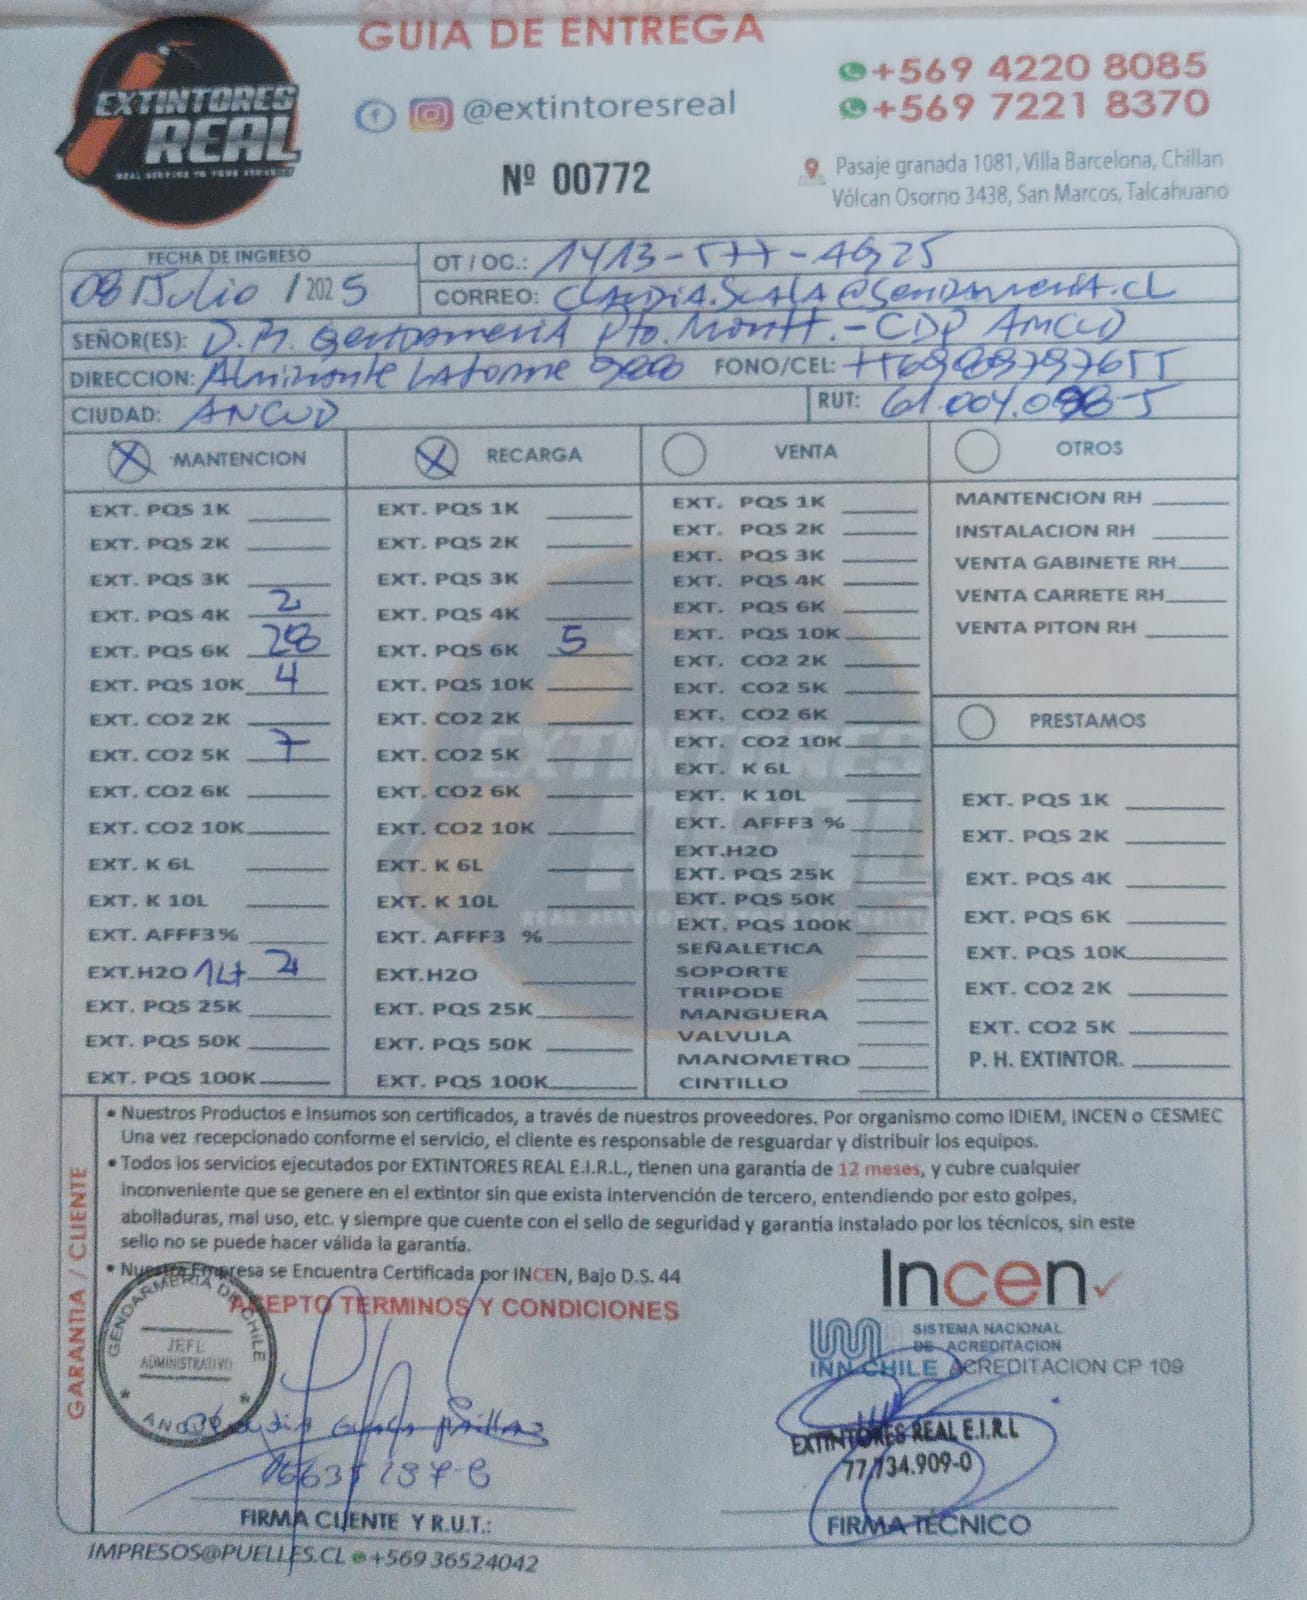 GUIA DE ENTREGA
EXTINTORES
REAL
REAL SERVICE TO YOUR SECURITY
@extintoresreal
Nº 00772
+569 4220 8085
+569 7221 8370
Pasaje granada 1081, Villa Barcelona, Chillan
Vólcan Osorno 3438, San Marcos, Talcahuano
FECHA DE INGRESO
08 / Julio / 2025
OT / OC.: 1413-577-AG25
CORREO: CLAUDIA.SCALA@GENDARMERIA.CL
SEÑOR(ES): D.R. Gendarmeria Pto. Montt.- CDP ANCUD
DIRECCION: Almirante Latorre
FONO/CEL:
CIUDAD: ANCUD
RUT: 61.004.0
MANTENCION
EXT. PQS 1K
EXT. PQS 2K
EXT. PQS 3K
EXT. PQS 4K 2
EXT. PQS 6K 28
EXT. PQS 10K 4
EXT. CO2 2K
EXT. CO2 5K 7
EXT. CO2 6K
EXT. CO2 10K
EXT. K 6L
EXT. K 10L
EXT. AFFF3%
EXT.H2O 1Lt 2
EXT. PQS 25K
EXT. PQS 50K
EXT. PQS 100K
RECARGA
EXT. PQS 1K
EXT. PQS 2K
EXT. PQS 3K
EXT. PQS 4K
EXT. PQS 6K 5
EXT. PQS 10K
EXT. CO2 2K
EXT. CO2 5K
EXT. CO2 6K
EXT. CO2 10K
EXT. K 6L
EXT. K 10L
EXT. AFFF3 %
EXT.H2O
EXT. PQS 25K
EXT. PQS 50K
EXT. PQS 100K
VENTA
EXT. PQS 1K
EXT. PQS 2K
EXT. PQS 3K
EXT. PQS 4K
EXT. PQS 6K
EXT. PQS 10K
EXT. CO2 2K
EXT. CO2 5K
EXT. CO2 6K
EXT. CO2 10K
EXT. K 6L
EXT. K 10L
EXT. AFFF3 %
EXT.H2O
EXT. PQS 25K
EXT. PQS 50K
EXT. PQS 100K
SEÑALETICA
SOPORTE
TRIPODE
MANGUERA
VALVULA
MANOMETRO
CINTILLO
OTROS
MANTENCION RH
INSTALACION RH
VENTA GABINETE RH
VENTA CARRETE RH
VENTA PITON RH
PRESTAMOS
EXT. PQS 1K
EXT. PQS 2K
EXT. PQS 4K
EXT. PQS 6K
EXT. PQS 10K
EXT. CO2 2K
EXT. CO2 5K
P. H. EXTINTOR.
GARANTIA / CLIENTE
• Nuestros Productos e Insumos son certificados, a través de nuestros proveedores. Por organismo como IDIEM, INCEN o CESMEC
Una vez recepcionado conforme el servicio, el cliente es responsable de resguardar y distribuir los equipos.
• Todos los servicios ejecutados por EXTINTORES REAL E.I.R.L., tienen una garantía de 12 meses, y cubre cualquier
inconveniente que se genere en el extintor sin que exista intervención de tercero, entendiendo por esto golpes,
abolladuras, mal uso, etc. y siempre que cuente con el sello de seguridad y garantía instalado por los técnicos, sin este
sello no se puede hacer válida la garantía.
• Nuestra Empresa se Encuentra Certificada por INCEN, Bajo D.S. 44
ACEPTO TERMINOS Y CONDICIONES
GENDARMERIA DE CHILE
JEFE
ADMINISTRATIVO
ANCUD
Incen
SISTEMA NACIONAL
DE ACREDITACION
INN CHILE ACREDITACION CP 109
EXTINTORES REAL E.I.R.L
77.734.909-0
FIRMA CLIENTE Y R.U.T.:
FIRMA TÉCNICO
IMPRESOS@PUELLES.CL +569 36524042